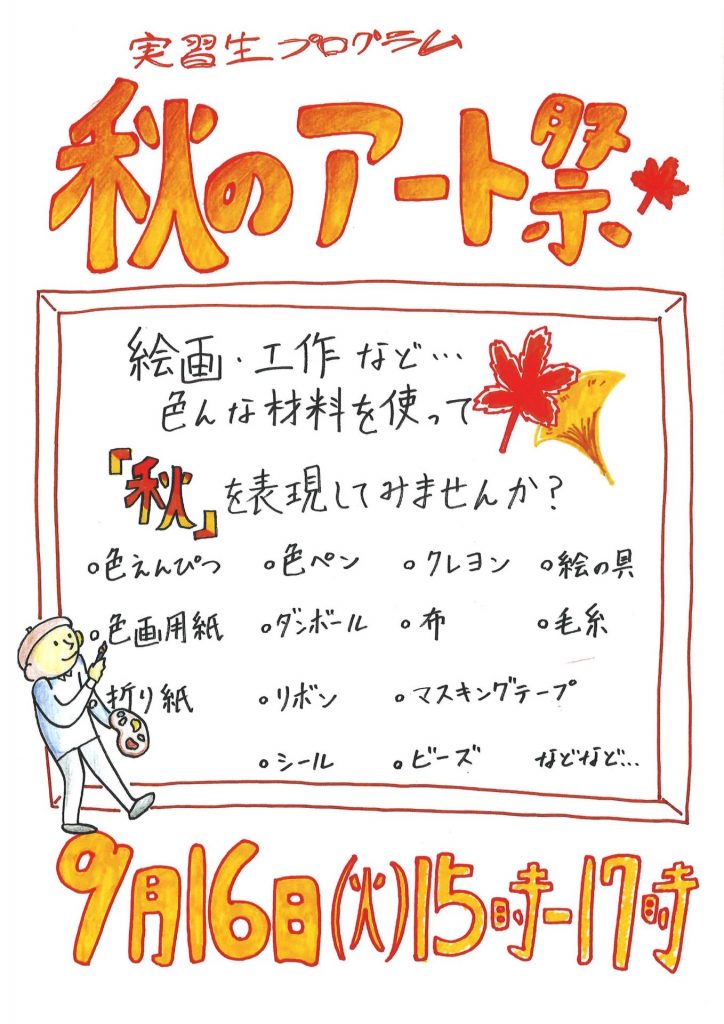 実習生プログラム
秋のアート祭
絵画・工作など…
色んな材料を使って
「秋」を表現してみませんか?
○色えんぴつ ○色ペン ○クレヨン ○絵の具
○色画用紙 ○ダンボール ○布 ○毛糸
○折り紙 ○リボン ○マスキングテープ
○シール ○ビーズ などなど…
9月16日(火)15時-17時